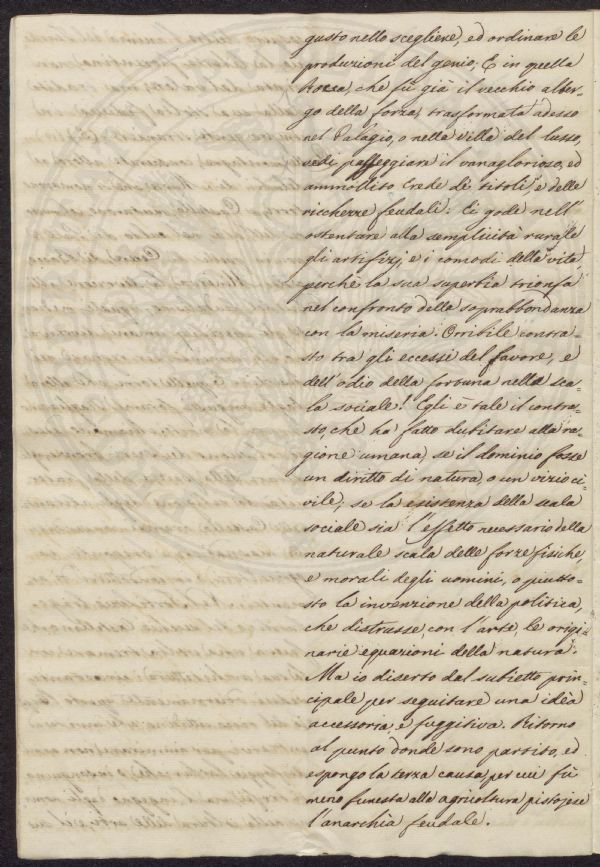 gusto nello scegliere, ed ordinare le
produzioni del genio, E in quella
Rocca, che fù già il vecchio alber=
go della forza, trasformata adesso
nel Palagio, o nella villa del lusso,
vedi passeggiare il vanaglorioso, ed
ammollito erede di titoli, e delle
ricchezze feudali: Ei gode nell'
ostentare alla semplicità rurale
gli artifizj, e i comodi della vita,
perchè la sua superbia trionfa
nel confronto della soprabbondanza
con la miseria. Orribile contra=
sto tra gli eccessi del favore, e
dell'odio della fortuna nella sca=
la sociale! Egli è tale il contra=
sto, chè ha fatto dubitare alla ra=
gione umana, se il dominio fosse
un diritto di natura, o un vizio ci=
vile, se la esistenza della scala
sociale sia l'effetto necessario della
naturale scala delle forze fisiche,
e morali degli uomini, o piutto=
sto la invenzione della politica,
che distrusse, con l'arte, le origi=
narie equazioni della natura.
Ma io diserto dal subietto prin=
cipale per seguitare una idèa
accessoria, e fuggitiva. Ritorno
al punto donde sono partito, ed
espongo la terza causa per cui fù
meno funesta alla agricoltura pistojese
l'anarchia feudale.